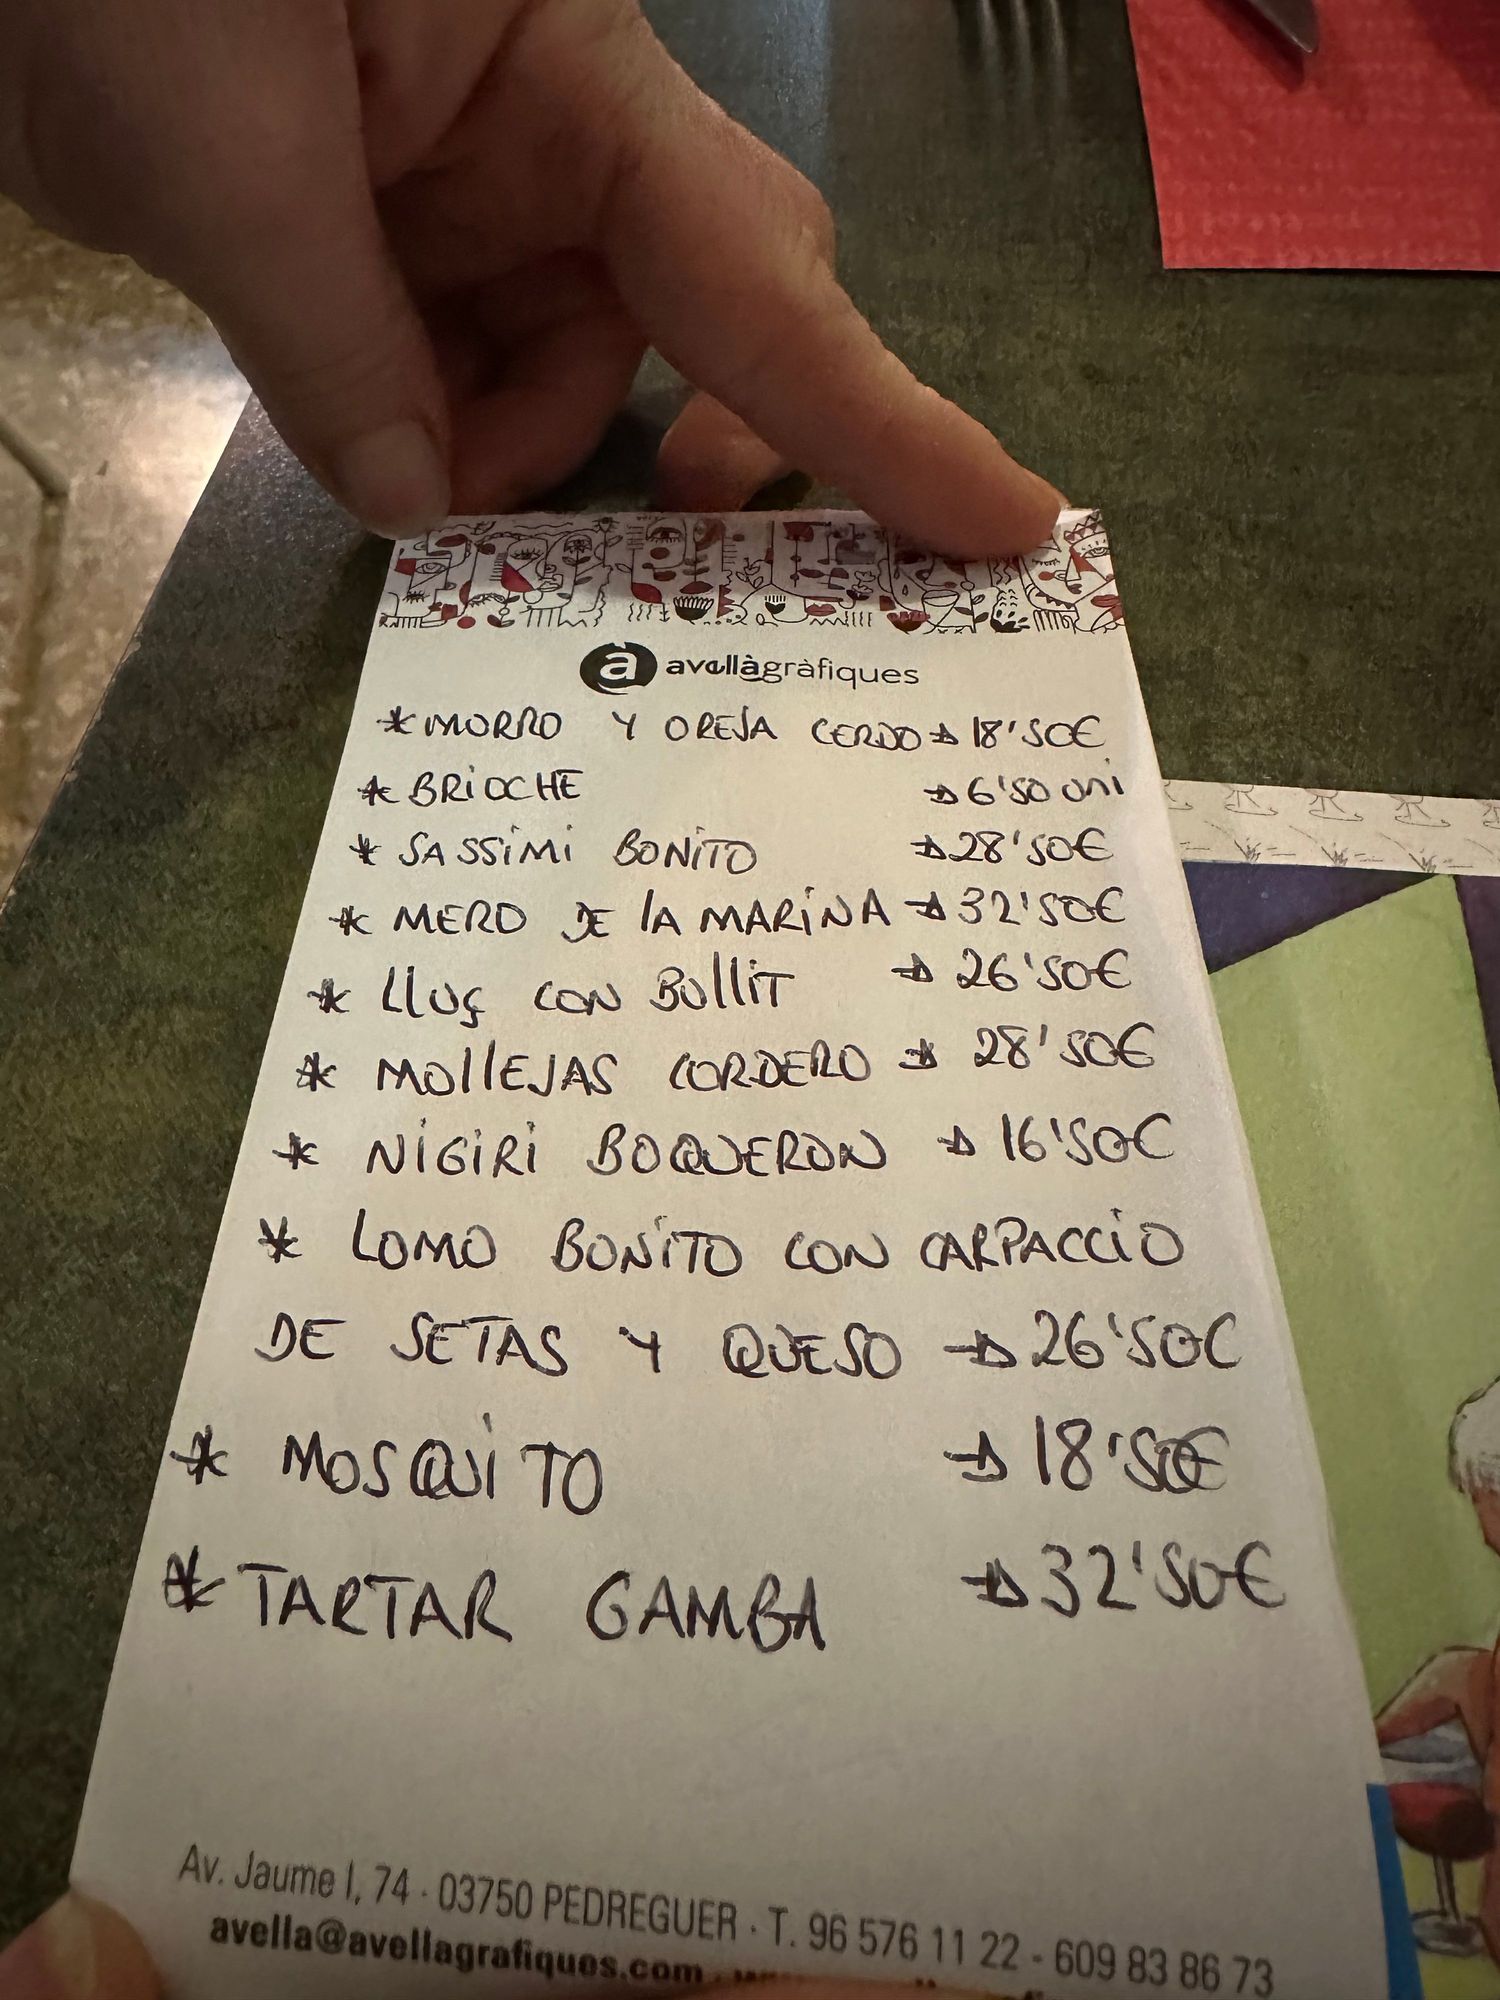 a avellàgràfiques
* MORRO Y OREJA CERDO → 18'50€
* BRIOCHE → 6'50 uni
* SASSIMI BONITO → 28'50€
* MERO DE lA MARINA → 32'50€
* LLUÇ CON BULLIT → 26'50€
* MOLLEJAS CORDERO → 28'50€
* NIGIRI BOQUERON → 16'50€
* LOMO BONITO CON CARPACCIO
DE SETAS Y QUESO → 26'50€
* MOSQUITO → 18'50€
* TARTAR GAMBA → 32'50€
Av. Jaume I, 74 · 03750 PEDREGUER · T. 96 576 11 22 - 609 83 86 73
avella@avellagrafiques.com